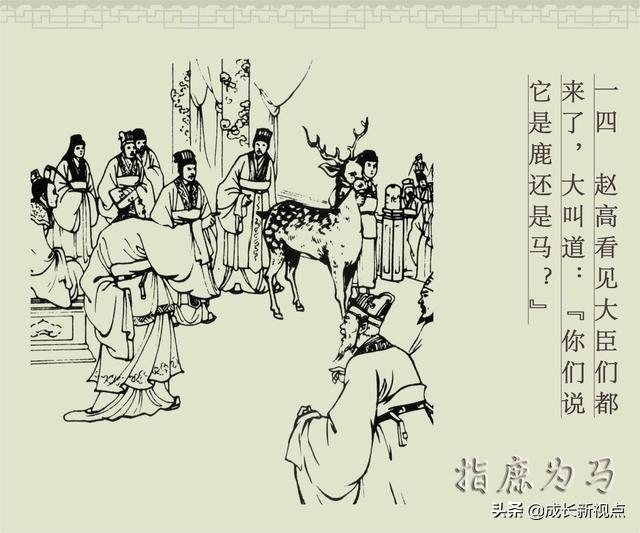 一四　赵高看见大臣们都
来了，大叫道：『你们说
它是鹿还是马？』
指鹿为马
头条 @成长新视点